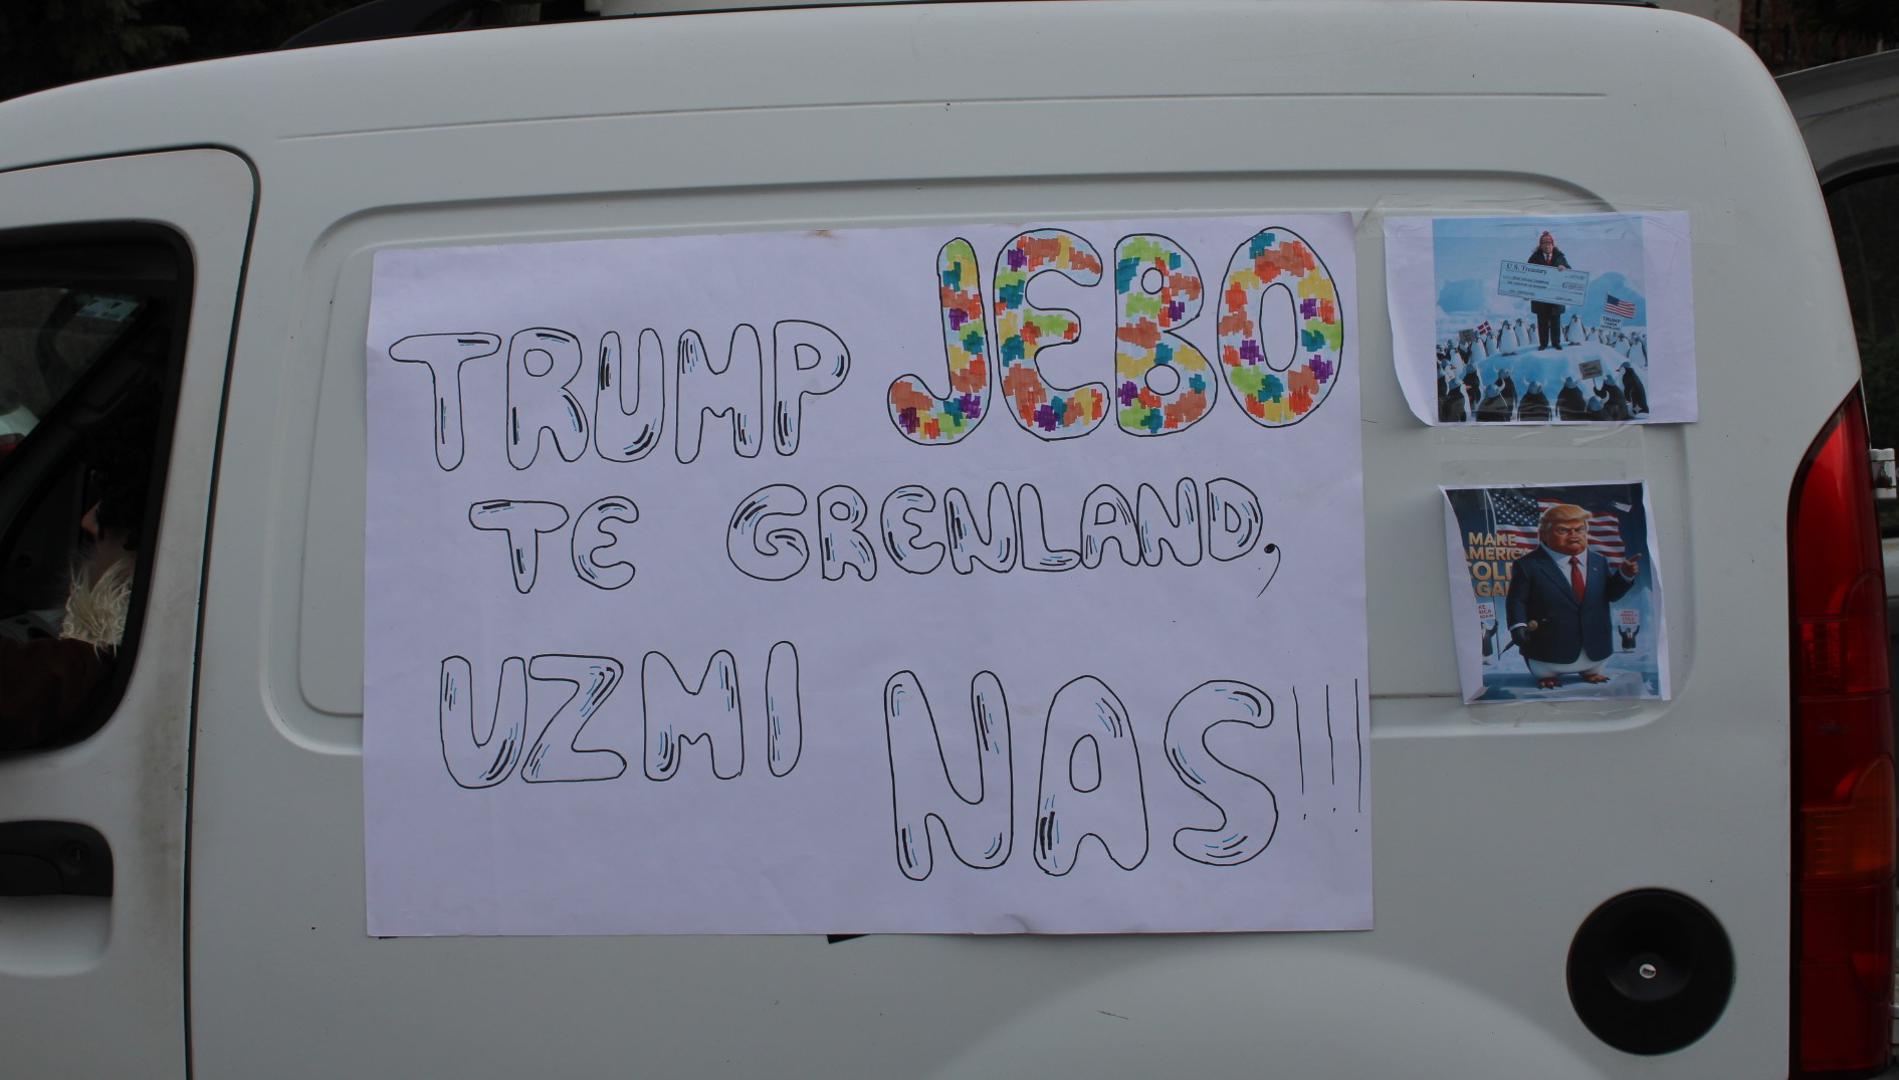 TRUMP JEBO
TE GRENLAND,
UZMI NAS!!!
U.S. Treasury
TRUMP
MAKE
AMERICA
COLD
AGAIN